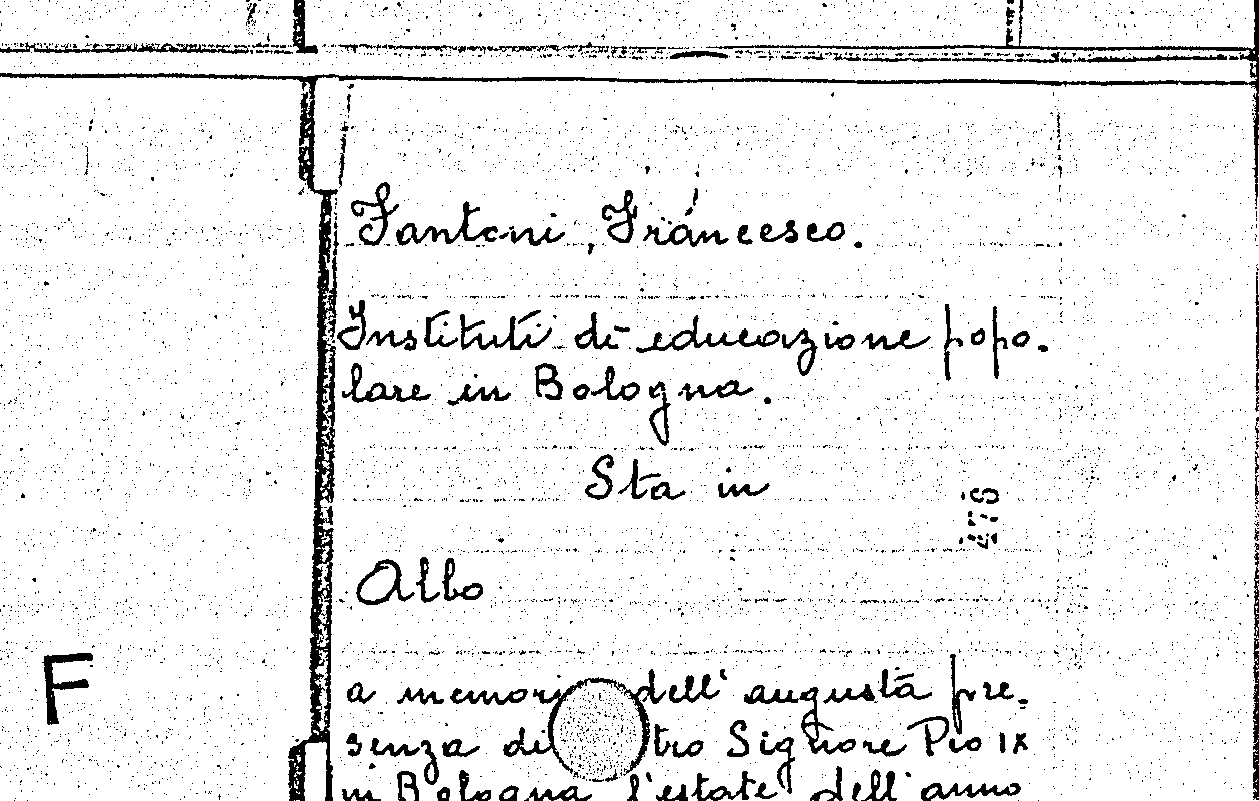 Fantoni, Francesco.
Instituti di educazione popo.
lare in Bologna.
Sta in
478
Albo
F
a memori dell' augusta pre.
senza di tro Signore Pio IX
in Bologna l'estate dell' anno